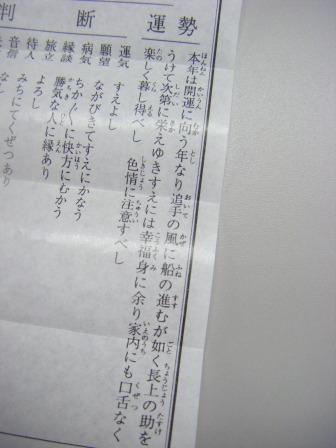 運勢
本年は開運に向う年なり追手の風に船の進むが如く長上の助を
うけて次第に栄えゆきすえには幸福身に余り家内にも口舌なく
楽しく暮し得べし　色情に注意すべし
判断
運気　すえよし
願望　ながびきてすえにかなう
病気　ちか〴〵に快方にむかう
縁談　勝気な人に縁あり
旅立　よろし
待人　みちにてくぜつあり
音信　なし